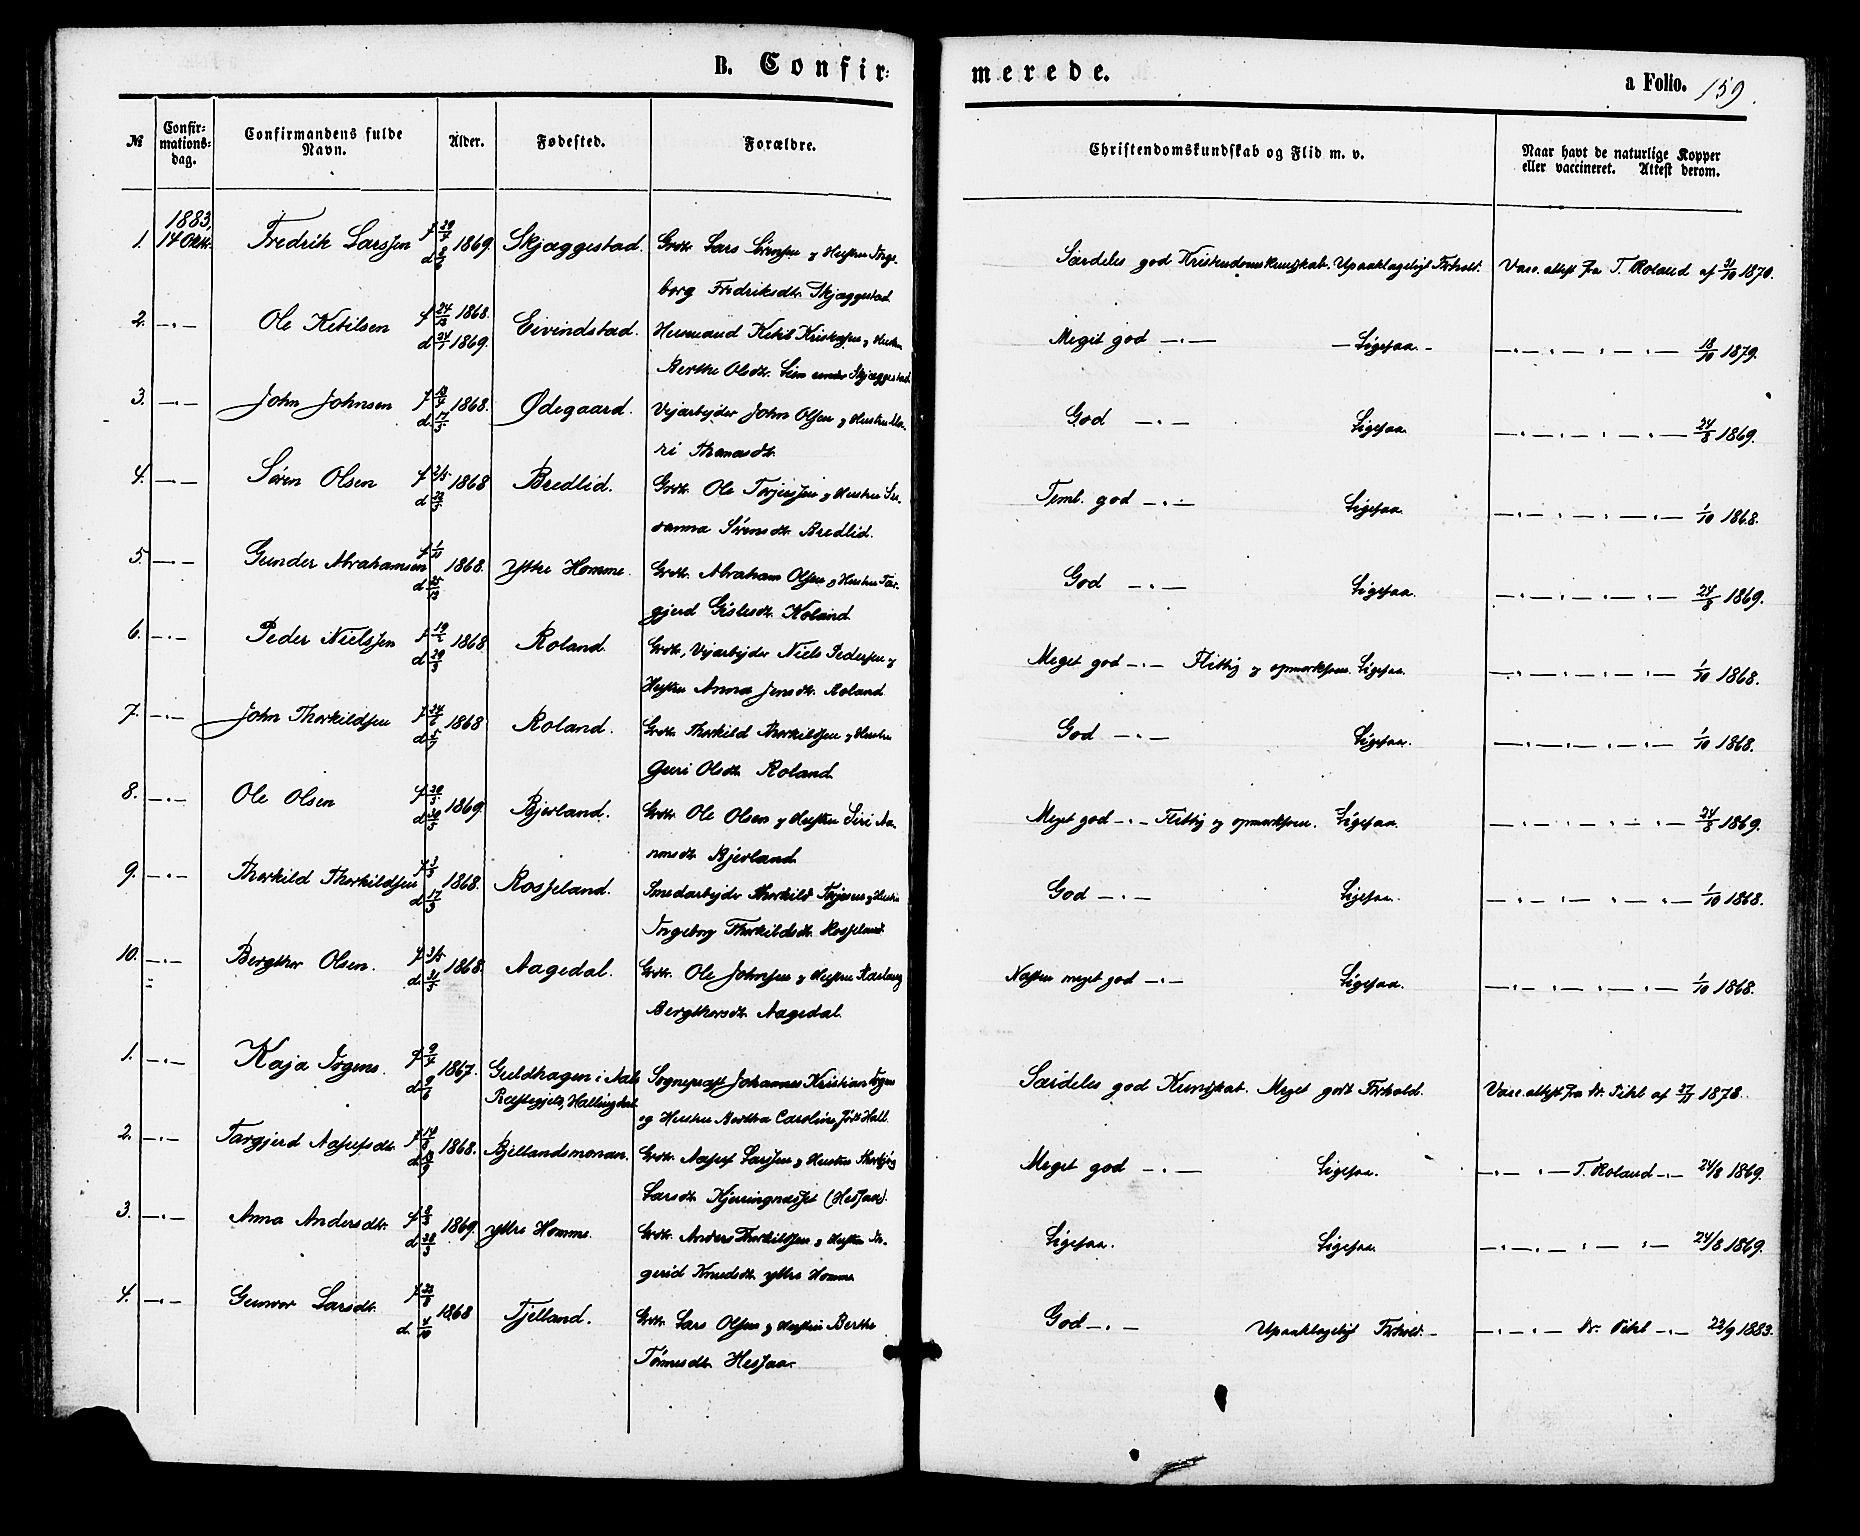 B. Confir-
merede.
a Folio. 159.
№ Confir-mations-dag. Confirmandens fulde Navn. Alder. Fødested. Forældre. Christendomskundskab og Flid m. v. Naar havt de naturlige Kopper eller vaccineret. Attest derom.
1883,
1. 14 Oktr. Fredrik Larssen f d 8/6 1869 Skjæggestad. Grdr. Lars Sørensen og Hustru Inge-
borg Fredriksdtr. Skjæggestad
Særdeles god Kristendomskundskab. Upaaklageligt Forhold. Vacc. attest fra T. Roland af 1870.
2. —„— Ole Ketilsen f 24/12 1868. d 24/1 1869. Eivindstad. Huusmand Ketil Kristensen og Hustru
Berthe Olsdtr. Skjæggestad
Meget god —„— — Ligesaa. — —„—„—„—„— 18/10 1879.
3. —„— John Johnsen f d. 17/5 1868. Ødegaard. Vejarbejder John Olsen og Hustru Ma-
ri Thomasdtr.
God —„— Ligesaa. —„—„—„—„— 24/8 1869.
4. —„— Søren Olsen f 2/5 d 1868 Bredlid. Grdr. Ole Terjessen og Hustru Su-
sanna Sørensdtr. Bredlid.
Teml. god —„— Ligesaa. —„—„—„—„— 1/10 1868.
5. —„— Gunder Abrahamsen f d 25/12 1868. Ytre Homme. Grdr. Abraham Olsen og Hustru Tar-
gjerd Gislesdtr. Roland
God —„— Ligesaa. —„—„—„—„— 24/8 1869.
6. —„— Peder Nielssen f d 1868 Roland. Grdr., Vejarbejder Niels Pedersen og
Hustru Anna Jensdtr. Roland
Meget god —„— Flittig og opmærksom. Ligesaa. —„—„—„—„— 1/10 1868.
7. —„— John Thorkildsen f 24/6 d 5/7 1868 Roland. Grdr. Thorkild Thorkildsen og Hustru
Guri Olsdtr. Roland
God —„— Ligesaa. —„—„—„—„— 1/10 1868.
8. —„— Ole Olsen f d 1869 Bjerland. Grdr. Ole Olsen og Hustru Siri Aa-
nensdtr. Bjerland
Meget god —„— Flittig og opmærksom. Ligesaa. —„—„—„—„— 24/8 1869.
9. —„— Thorkild Thorkildsen f 3/3 d. 17/5 1868. Rosseland. Smedarbejder Thorkild Terjesen og Hustru
Ingeborg Thorkildsdtr. Rosseland.
God —„— Ligesaa. —„—„—„—„— 1/10 1868.
10. —„— Bergthor Olsen. f 3/5 d. 31/5 1868. Aagedal. Grdr. Ole Johnsen og Hustru
Bergthorsdtr. Aagedal.
Næsten meget god —„— Ligesaa. —„—„—„—„— 1/10 1868.
1. —„— Kaja Irgens. f 9/4 d 9/6 1867. Guldhagen i Aals
Præstegjeld, Hallingdal. Sognepræst Johannes Kristian Irgens
og Hustru Martha Caroline, født Hall.
Særdeles god Kundskab. Meget godt Forhold. Vacc. attest fra Dr. Pihl af 1878.
2. —„— Targjerd Aasulfsdtr. f d 1868. Bjellandsmonan. Grdr. Aasulf Larssen og Hustru Thorbjør
Larsdtr. Kjerringnæsset (Hesaa).
Meget god —„— Ligesaa. —„—„— T. Roland —„— 24/8 1869.
3. —„— Anna Andersdtr. f 8/3 d 28/3 1869. Ytre Homme. Grdr. Anders Thorkildsen og Hustru In-
gerid Knudsdtr. Ytre Homme
Ligesaa. Ligesaa. —„—„—„—„— 24/8 1869.
4. —„— Gunvor Larsdtr. f d. 4/10 1868 Tjelland. Grdr. Lars Olsen og Hustru Berthe
Tomesdtr. Hessaa.
God —„— Upaaklageligt Forhold. — —„—„— Dr. Pihl —„— 22/9 1883.